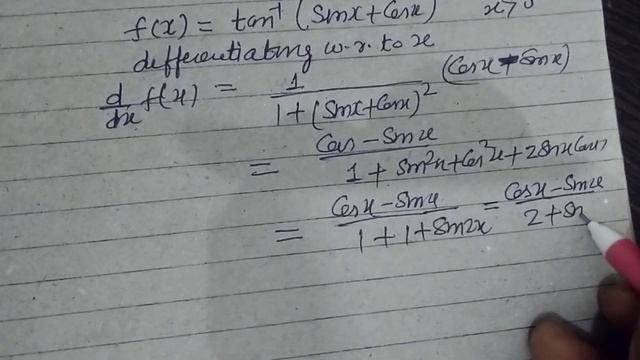 f(x) = tan⁻¹ (Sinx + Cosx) x>0
differentiating w.r. to x
d/dx f(x) = 1/(1+(Sinx+Cosx)²) (Cosx - Sinx)
= (Cos - Sinx)/(1 + Sin²x + Cos²x + 2SinxCosx)
= (Cosx - Sinx)/(1+1+Sin2x) = (Cosx - Sinx)/(2+Si